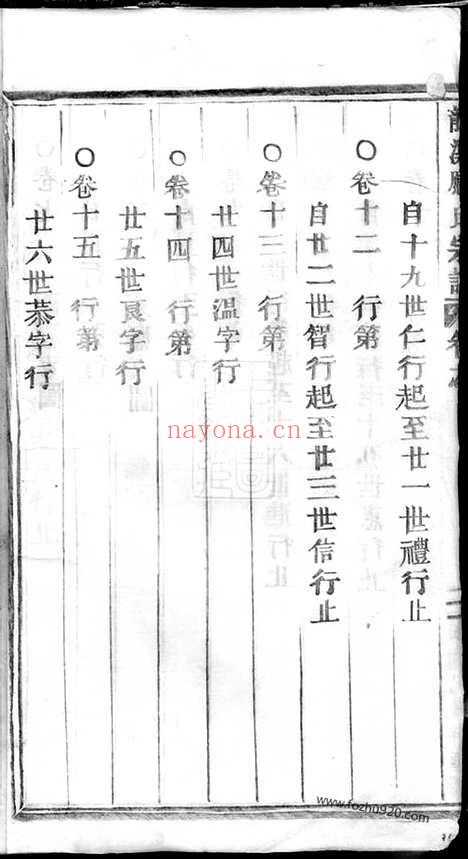 自十九世仁行起至廿一世禮行止
○卷十二 行第
自廿二世智行起至廿三世信行止
○卷十三 行第
廿四世溫字行
○卷十四 行第
廿五世良字行
○卷十五 行第
廿六世恭字行
nayona.cn
www.fozhu920.com